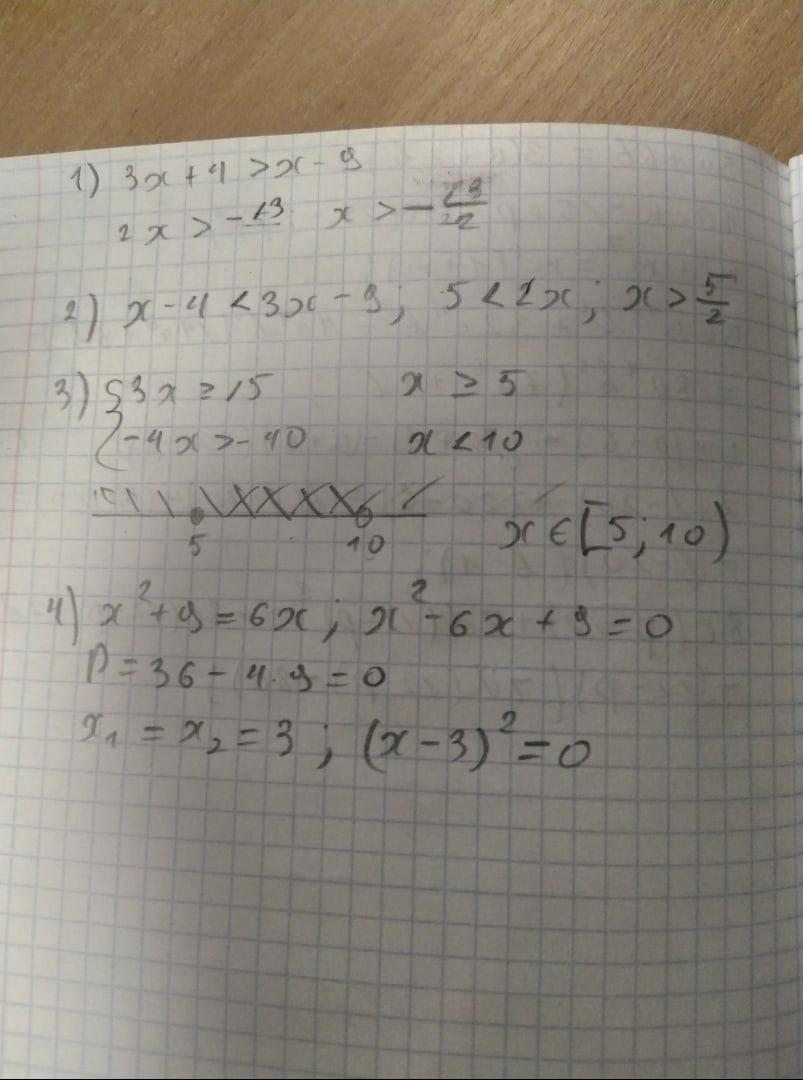 1) 3x + 4 > x - 9
2x > -13   x > -13/2
2) x - 4 < 3x - 9;   5 < 2x;   x > 5/2
3) { 3x ≥ 15   x ≥ 5
-4x > -40   x < 10
5   10   x ∈ [5; 10)
4) x² + 9 = 6x; x² - 6x + 9 = 0
D = 36 - 4·9 = 0
x₁ = x₂ = 3; (x - 3)² = 0